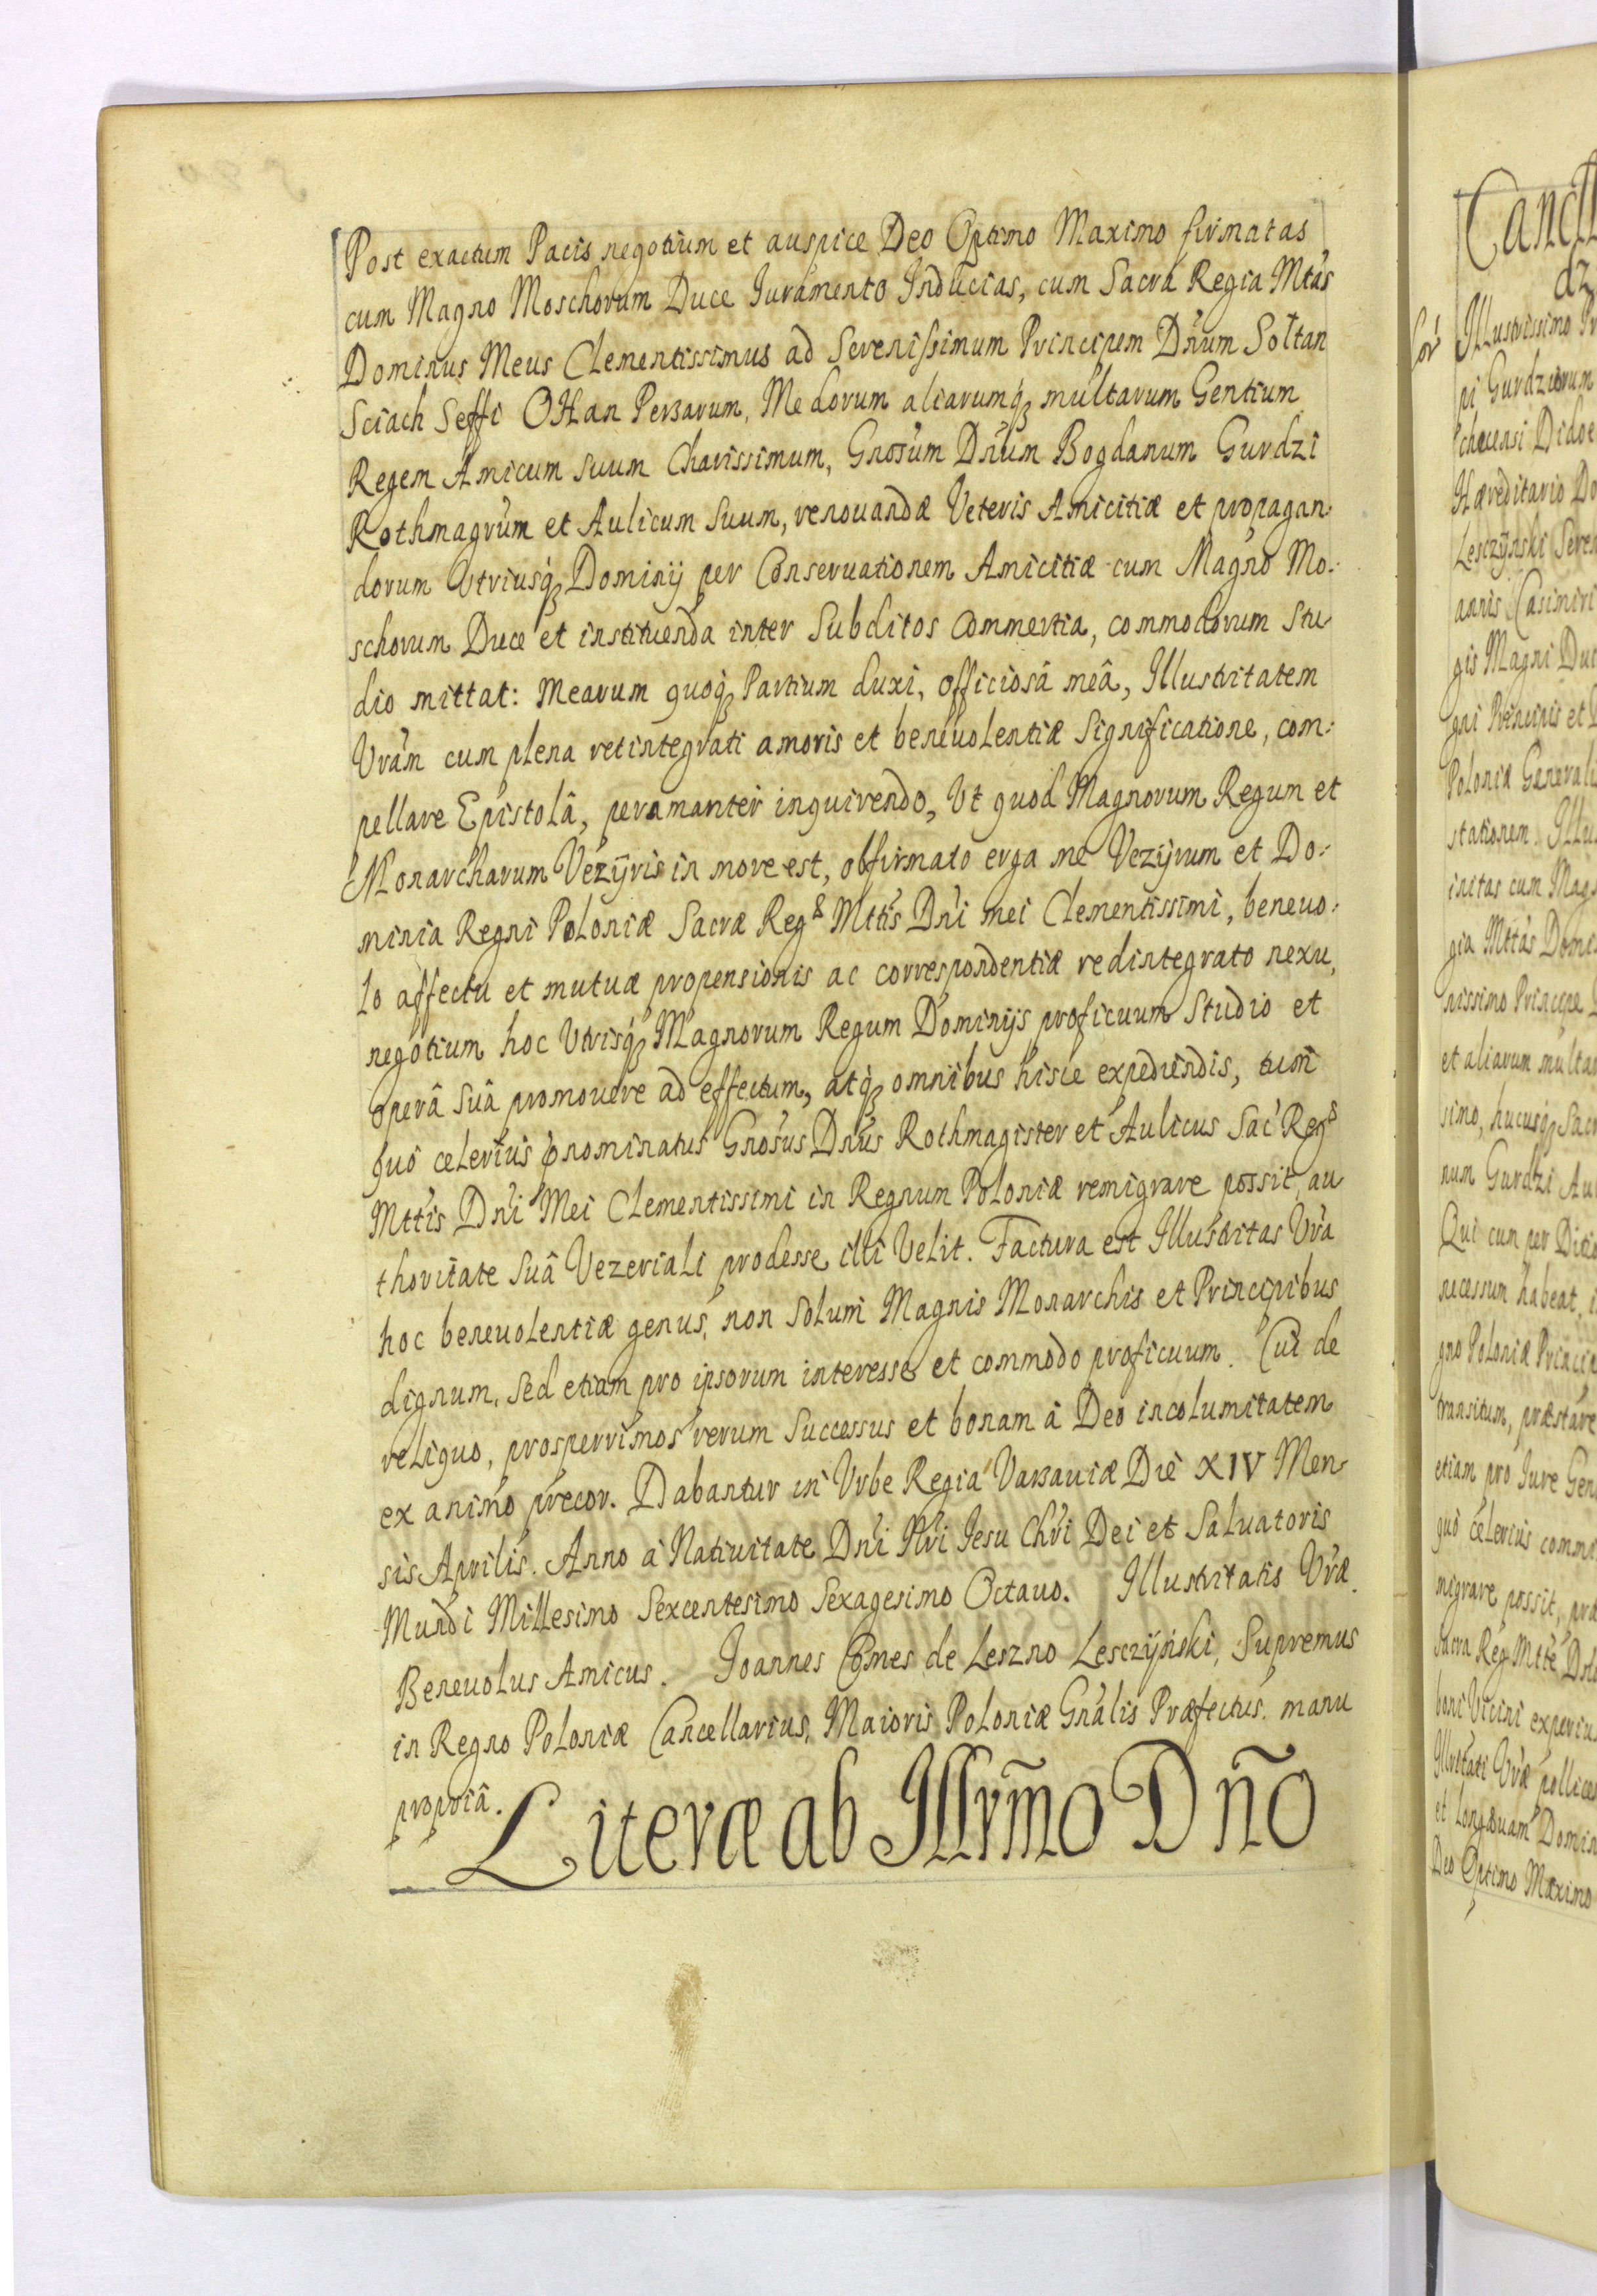 Post exactum Pacis negotium et auspice Deo Optimo Maximo firmatas
cum Magno Moschorum Duce Iuramento Inducias, cum Sacra Regia Mtàs
Dominus Meus Clementissimus ad Serenissimum Principem Dnum Soltan
Sciach Seffi OHan Persarum, Medorum aliarumq́ꝫ multarum Gentium
Regem Amicum suum Charissimum, Gnosum Dnum Bogdanum Gurdzi
Rothmagrum et Aulicum Suum, renouandæ Veteris Amicitiæ et propagan:
dorum Vtriusq́ꝫ Dominij per Conseruationem Amicitiæ cum Magno Mo:
schorum Duce et instituenda inter Subditos Commertia, commodorum Stu
dio mittat: Mearum quoq́ꝫ Partium duxi, officiosâ meâ, Illustritatem
Vram cum plena retintegrati amoris et beneuolentiæ Significatione, com:
pellare Epistolâ, peramanter inquirendo, Vt quod Magnorum Regum et
Monarcharum Vezijris in more est, obfirmato erga me Vezijrum et Do:
minia Regni Poloniæ Sacræ Regæ Mttis Dni mei Clementissimi, beneuo:
lo affectu et mutuæ propensionis ac correspondentiæ redintegrato nexu,
negotium hoc Vtrisq́ꝫ Magnorum Regum Dominijs proficuum Studio et
operâ Suâ promouere ad effectum, atq́ꝫ omnibus hisce expediendis, tum
quò celerius p̄nominatus Gnosus Dnus Rothmagister et Aulicus Sac Regæ
Mttis Dni Mei Clementissimi in Regnum Poloniæ remigrare possit, au
thoritate Suâ Vezeriali prodesse illi Velit. Factura est Illustritas Vra
hoc beneuolentiæ genus, non Solum Magnis Monarchis et Principibus
dignum, Sed etiam pro ipsorum interesse et commodo proficuum. Cui de
reliquo, prosperrimos rerum Successus et bonam à Deo incolumitatem
ex animo precor. Dabantur in Vrbe Regia Varsauiæ Die XIV Men
sis Aprilis. Anno à Natiuitate Dni Nri Iesu Chri Dei et Saluatoris
Mundi Millesimo Sexcentesimo Sexagesimo Octauo. Illustritatis Vræ
Beneuolus Amicus. Joannes Comes de Leszno Lesczijński, Supremus
in Regno Poloniæ Cancellarius, Maioris Poloniæ Gnalis Præfectus. manu
propriâ.
Literæ ab Illrm̃o Dño
Cancell
dz
Illustrissimo Pr
pi Gurdziorum
checensi Didoe
Hæreditario Do
Lesczijnski Seren
annis Casimiri
gis Magni Duc
gni Principis et
Poloniæ Generali
stationem. Illu
initas cum Mag
gia Mttàs Domi
nissimo Principe D
et aliarum multar
simo, hucusq́ꝫ Sacr
num Gurdzi Au
Qui cum per Ditio
necessum habeat, i
gno Poloniæ Princip
transitum, præstare
etiam pro Iure Gen
quò celerius commi
migrare possit, præ
Sacra Reg Mtte Dno
boni Vicini experiu
Illritati Vræ pollice
et longæuam Domin
Deo Optimo Maximo